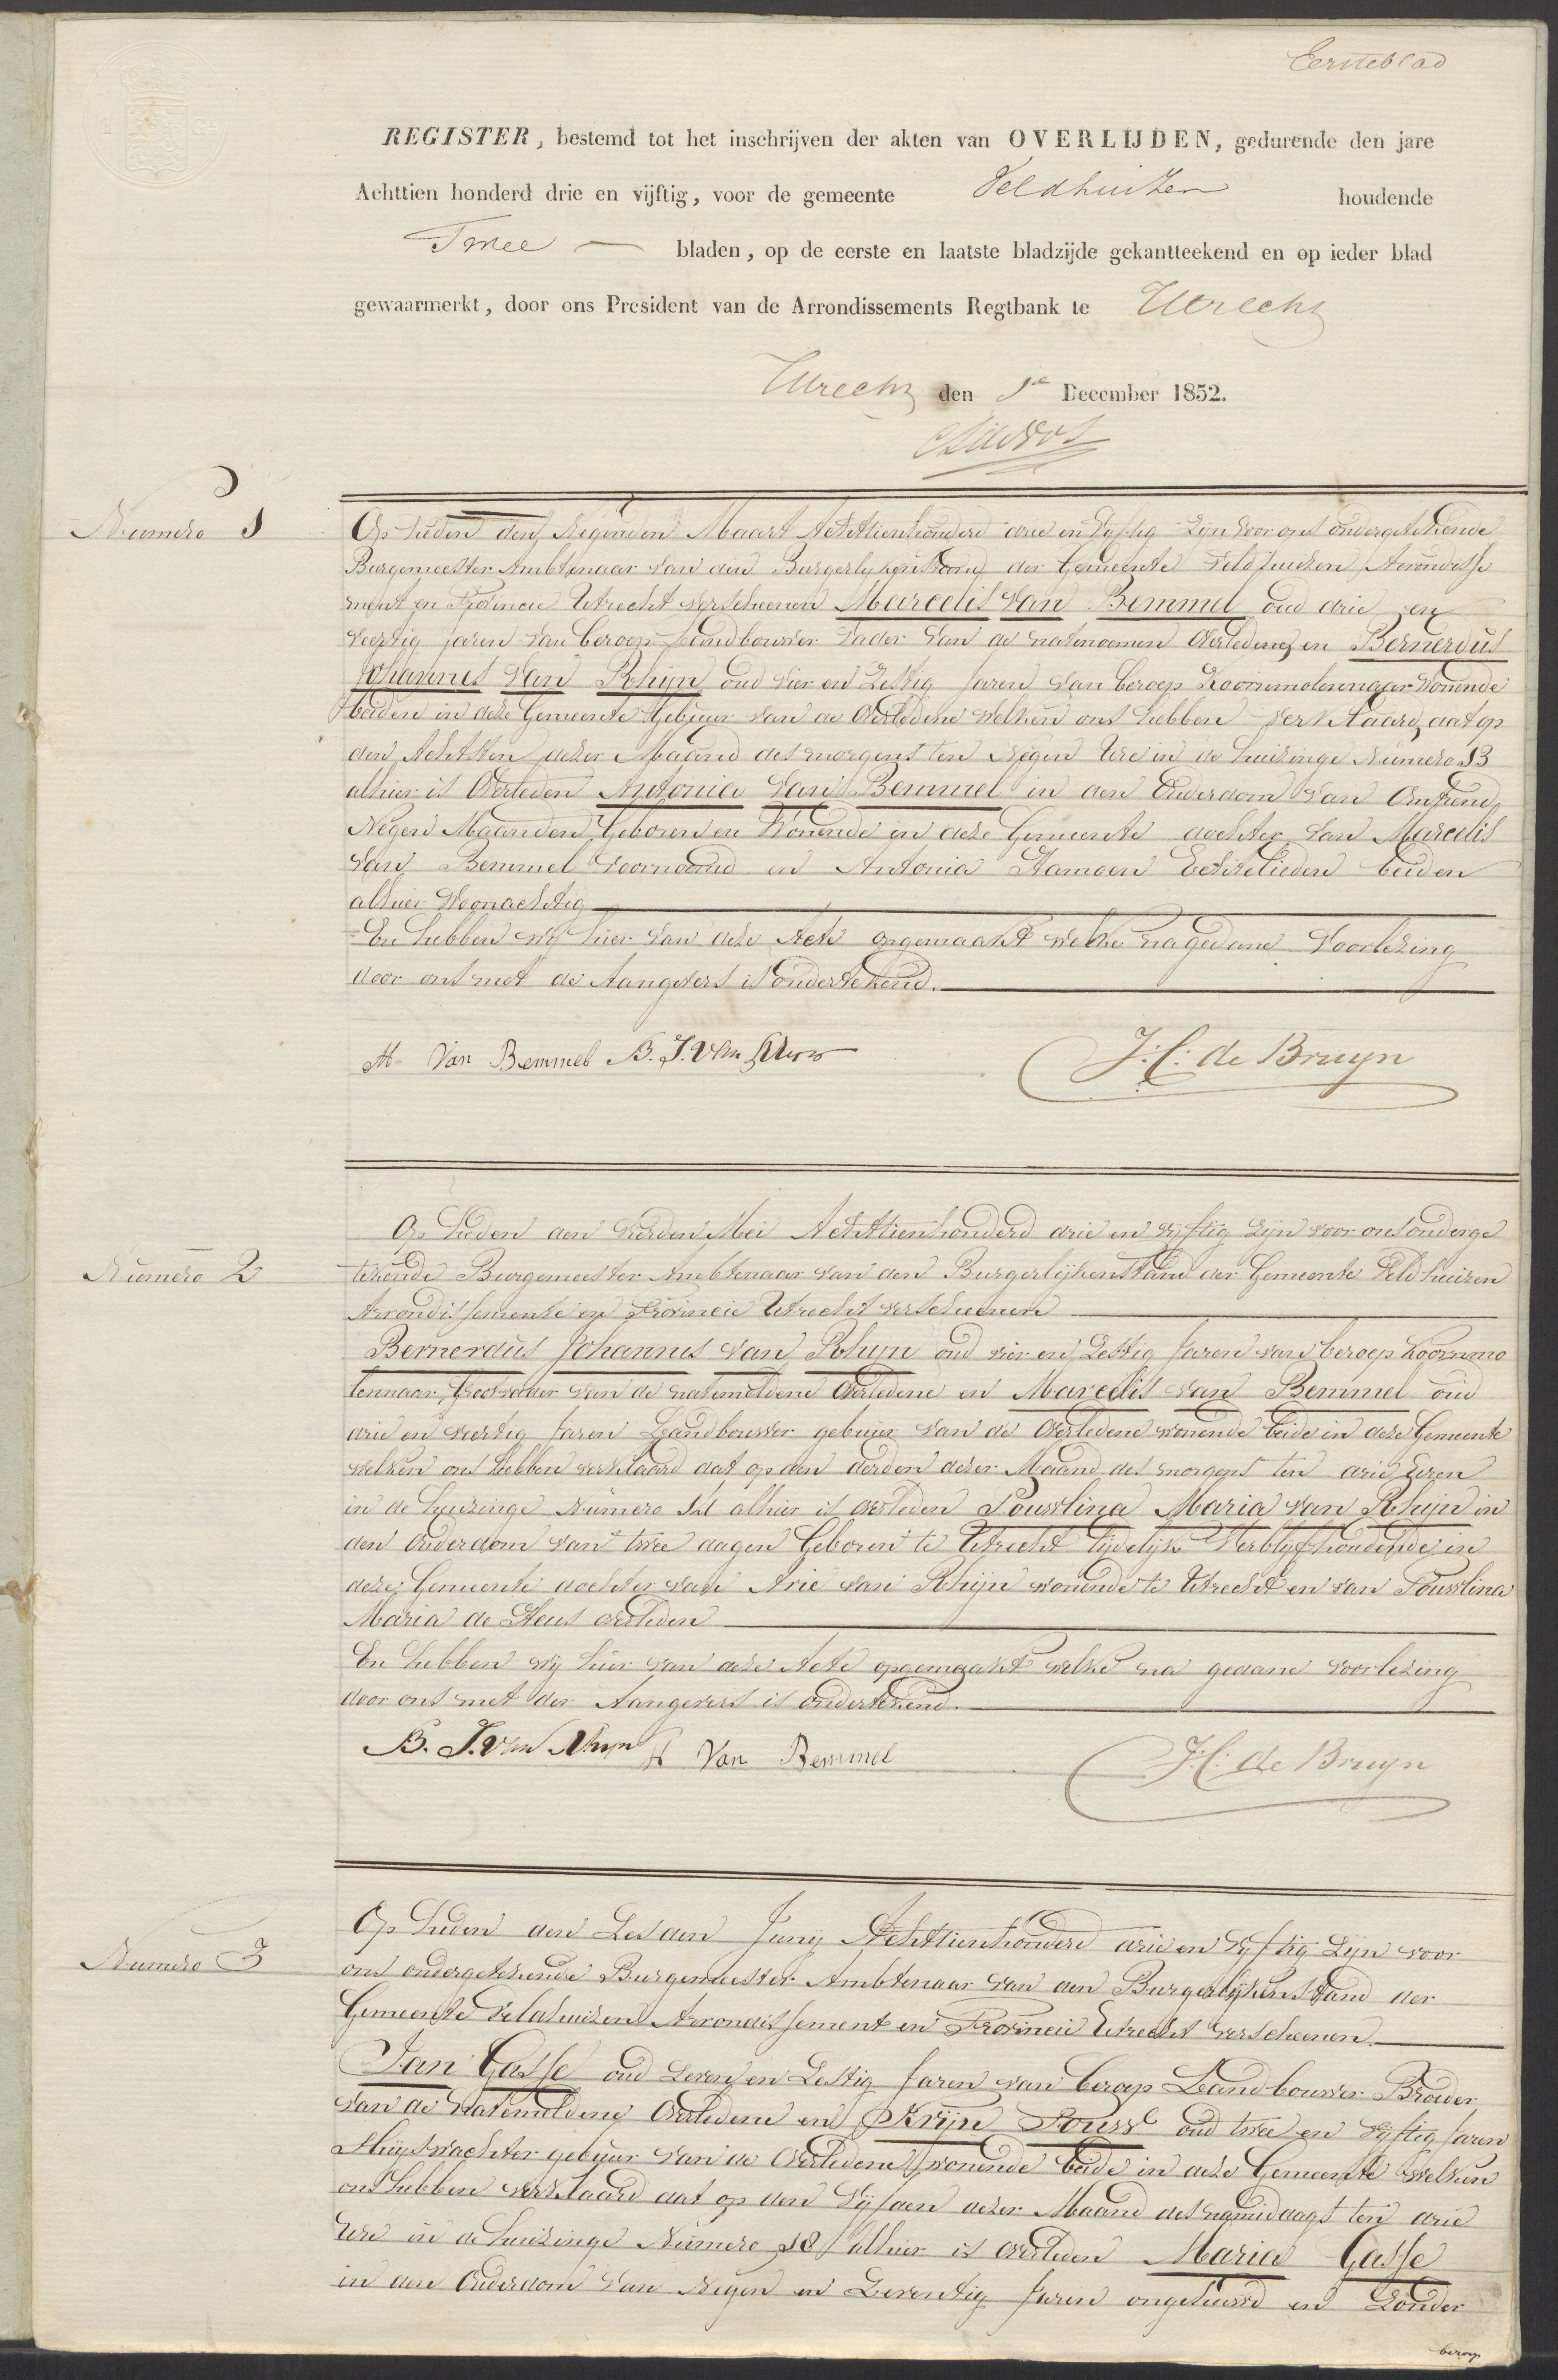 Eersteblad
REGISTER, bestemd tot het inschrijven der akten van OVERLIJDEN, gedurende den jare
Achttien honderd drie en vijftig, voor de gemeente Veldhuizen houdende
Twee bladen, op de eerste en laatste bladzijde gekantteekend en op ieder blad
gewaarmerkt, door ons President van de Arrondissements Regtbank te Utrecht
Utrecht den 1e December 1852.
Numero 1
Op heden den Negenden Maart Achttienhonderd drie en Vyftig zyn voor ons ondergetekende
Burgemeester Ambtenaar van den Burgerlykenstand der Gemeente Veldhuizen Arrondisse
ment en Provincie Utrecht verscheenen Marcelis van Bemmel oud drie en
veertig Jaren van beroep Landbouwer Vader van de natenoemen Overledene en Bernerdus
Johannes van Rhijn oud vier en Zestig Jaren van beroep Koornmolenaar Wonende
beiden in deze Gemeente Gebuur van de Overledene welken ons hebben verklaard dat op
den Achtsten dezer Maand des morgens ten Negen Ure in de huizinge Numero 13
alhier is Overleden Antonia van Bemmel in den Ouderdom van Omtrend
Negen Maanden Geboren en Wonende in deze Gemeente dochter van Marcelis
van Bemmel voornoemd en Antonia Hamoen Echtelieden beiden
alhier Woonachtig
En hebben wy hier van deze Acte opgemaakt welke na gedane Voorlezing
door ons met de Aangevers is ondertekend.
M Van Bemmel B. J. van Rhijn J: C: de Bruyn
Numero 2
Op heden den vierden Mei Achttienhonderd drie en vijftig zijn voor ons onderge
tekende Burgemeester Ambtenaar van den Burgerlijkenstand der Gemeente Veldhuizen
Arrondissemente en Provincie Utrecht verscheenen
Bernerdus Johannes van Rhijn oud vier en Zestig Jaren van beroep Koornmo
lennaar, Grootvader van de natemeldene Overledene en Marcelis van Bemmel oud
drie en veertig Jaren Landbouwer gebuur van de Overledene wonende beide in deze Gemeente
welken ons hebben verklaard dat op den derden dezer Maand des morgens ten drie Uren
in de huizinge Numero alhier is overleden Pouwlina Maria van Rhijn in
den ouderdom van twee dagen Geboren te Utrecht tijdelijk Verblyfhoudende in
deze Gemeente dochter van Arie van Rhijn wonende te Utrecht en van Pouwlina
Maria de Heus overleden
En hebben wy hier van deze Acte opgemaakt welke na gedane voorlezing
door ons met der Aangevers is ondertekend.
B. J. van Rhijn M Van Bemmel J: C: de Bruyn
Numero 3
Op heden den Zesden Junij Achttienhonderd drie en Vyftig Zijn voor
ons ondergetekende Burgemeester Ambtenaar van den Burgerlijkenstand der
Gemeente Veldhuizen Arrondissement en Provincie Utrecht verscheenen
Jan Gasse oud Zeven en Zestig Jaren van beroep Landbouwer Broeder
van de Natemeldene Overledene en Krijn Pouw oud twee en Vyftig Jaren
Sluyswachter gebuur van de Overledene wonende beide in deze Gemeente welken
ons hebben verklaard dat op den Vijfden dezer Maand des namiddags ten drie
Ure in de huizinge Numero 18 alhier is overleden Maria Gasse
in den Ouderdom van Negen en Zeventig Jaren ongehuwd en Zonder
beroep